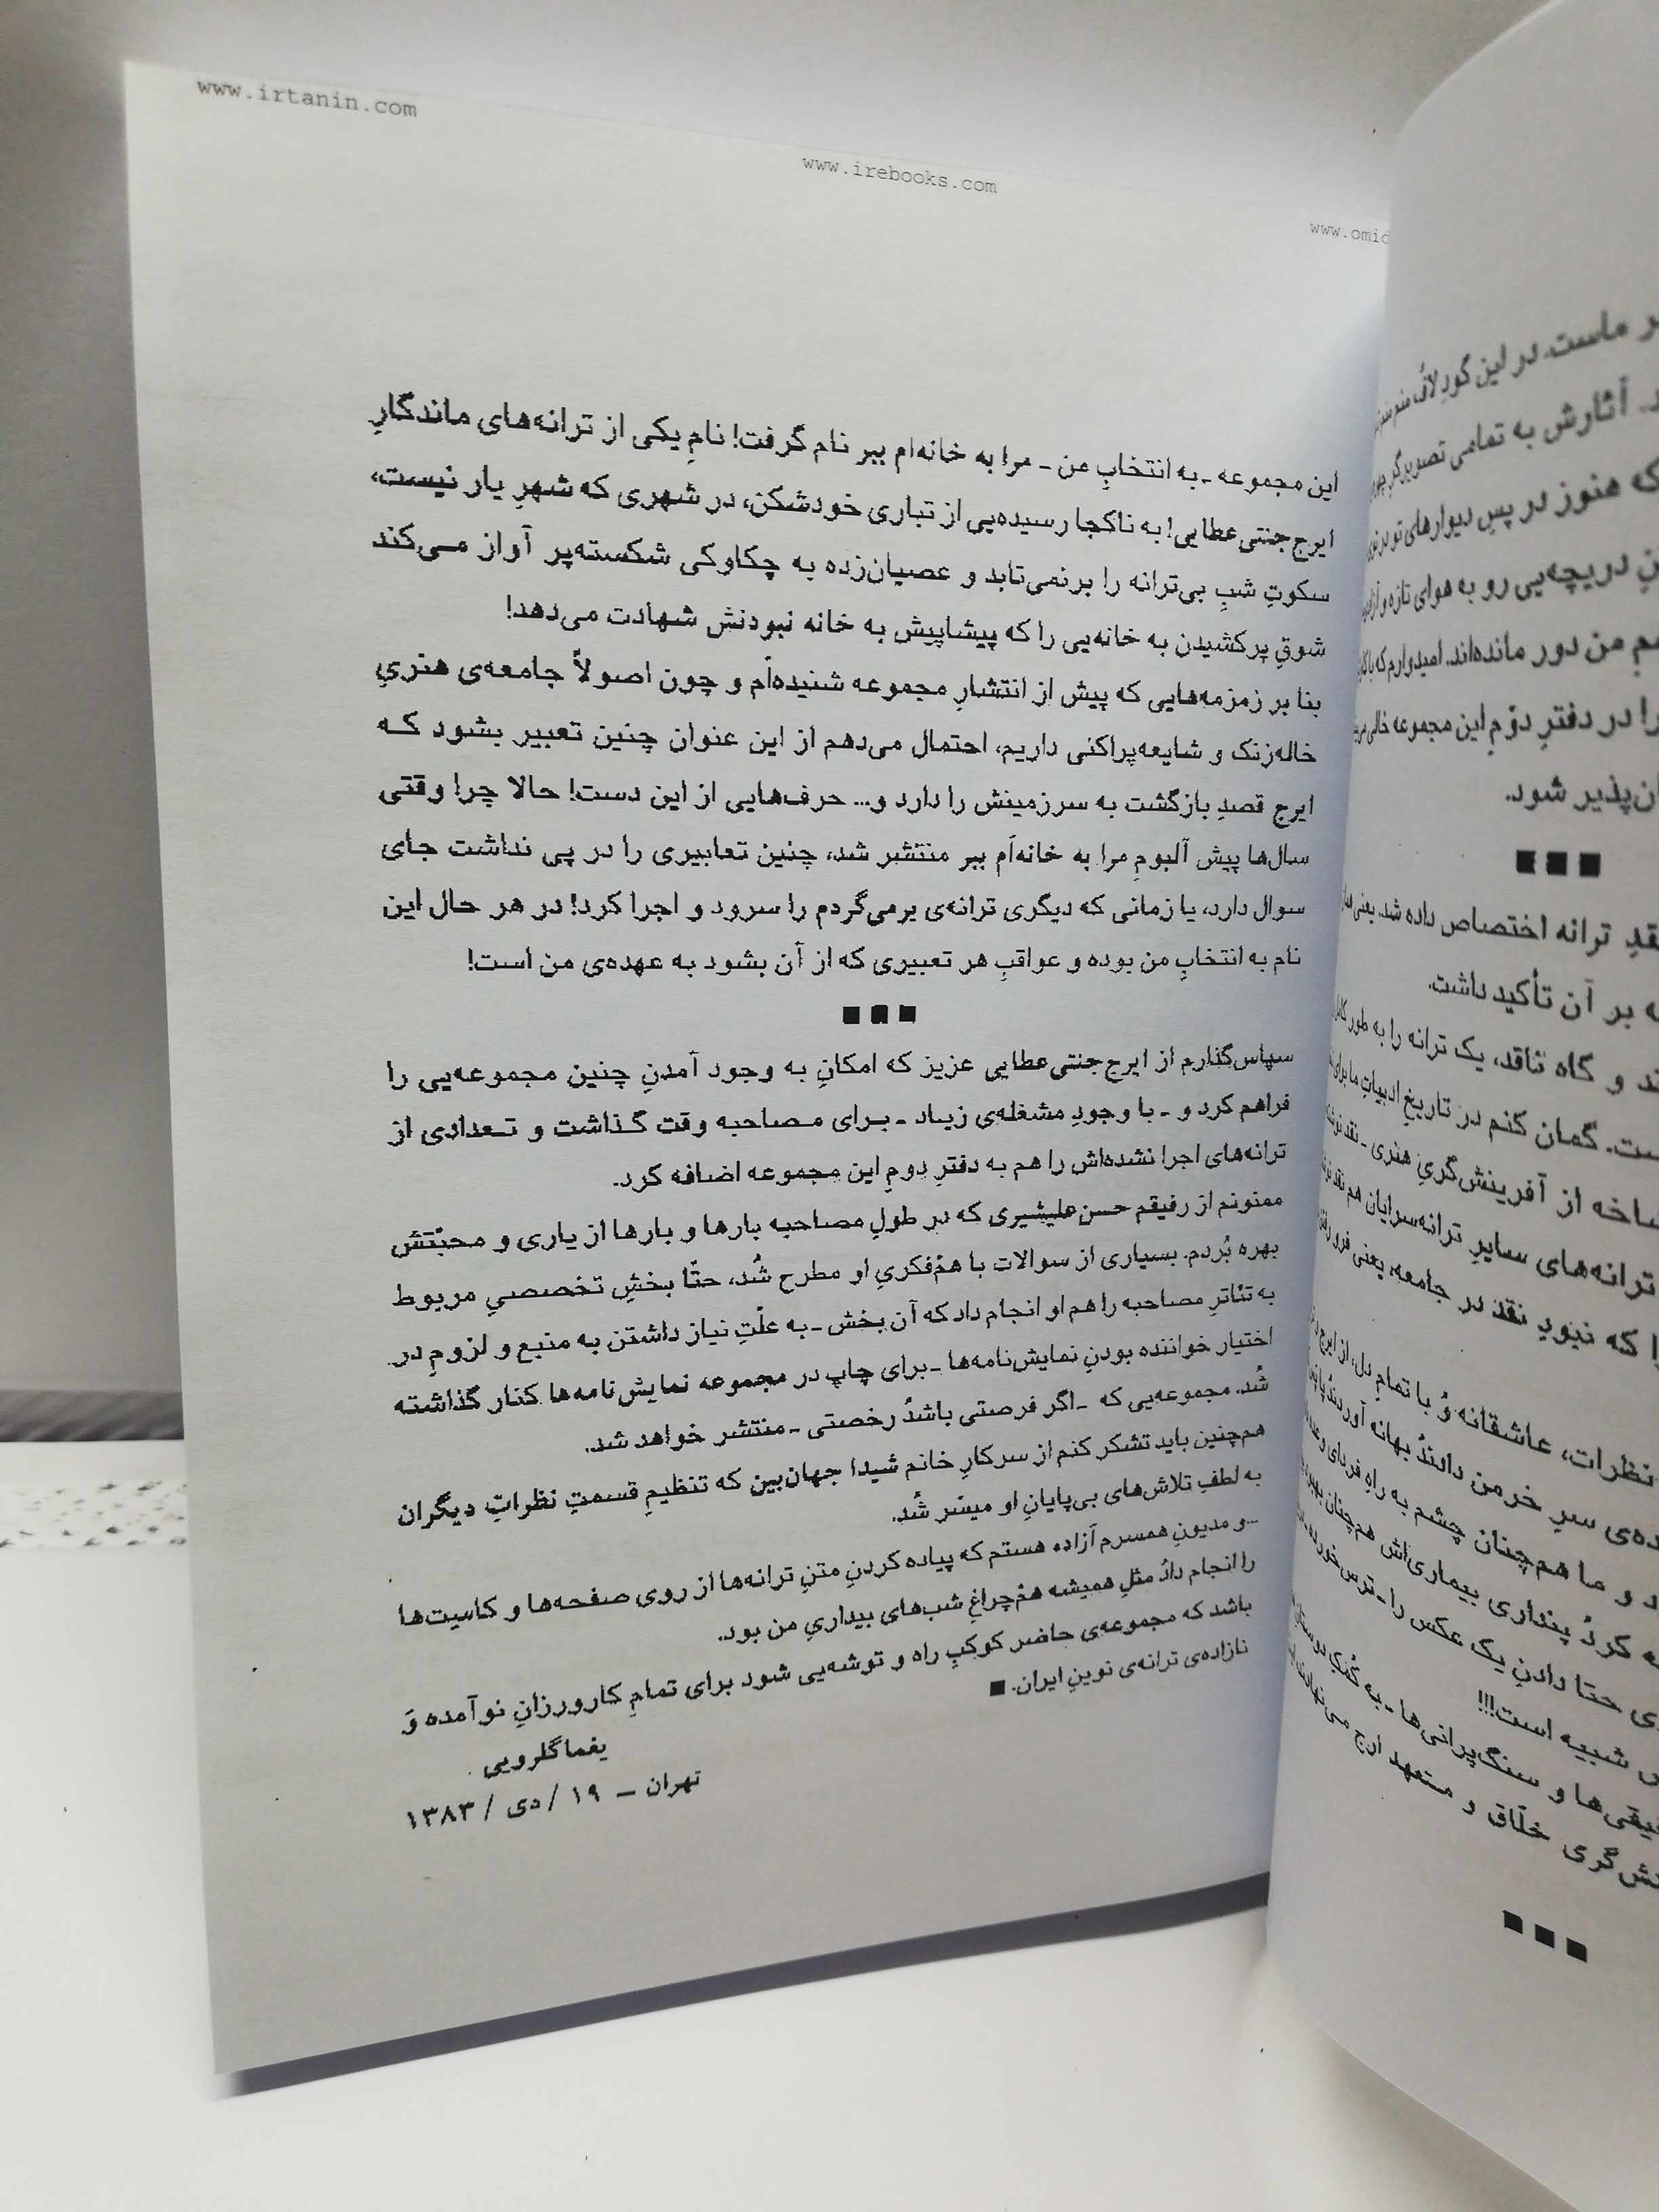 www.irtanin.com
www.irebooks.com
www.omid
این مجموعه ـ به انتخابِ من ـ مرا به خانه‌ام ببر نام گرفت! نامِ یکی از ترانه‌های ماندگارِ
ایرج جنتی‌عطایی! به ناکجا رسیده‌یی از تباری خودشکن، در شهری که شهرِ یار نیست،
سکوتِ شبِ بی‌ترانه را برنمی‌تابد و عصیان‌زده به چکاوکی شکسته‌پر آواز می‌کند
شوقِ پرکشیدن به خانه‌یی را که پیشاپیش به خانه نبودنش شهادت می‌دهد!
بنا بر زمزمه‌هایی که پیش از انتشارِ مجموعه شنیده‌اَم و چون اصولاً جامعه‌ی هنریِ
خاله‌زنک و شایعه‌پراکنی داریم، احتمال می‌دهم از این عنوان چنین تعبیر بشود کـه
ایرج قصدِ بازگشت به سرزمینش را دارد و... حرف‌هایی از این دست! حالا چرا وقتی
سال‌ها پیش آلبومِ مرا به خانه‌اَم ببر منتشر شد، چنین تعابیری را در پی نداشت جای
سوال دارد، یا زمانی که دیگری ترانه‌ی برمی‌گردم را سرود و اجرا کرد! در هر حال این
نام به انتخابِ من بوده و عواقبِ هر تعبیری که از آن بشود به عهده‌ی من است!
■ ■ ■
سپاس‌گذارم از ایرج جنتی‌عطایی عزیز که امکانِ به وجود آمدنِ چنین مجموعه‌یی را
فراهم کرد و ـ با وجودِ مشغله‌ی زیـاد ـ بـرای مـصاحبه وقت گـذاشت و تـعدادی از
ترانه‌های اجرا نشده‌اش را هم به دفترِ دومِ این مجموعه اضافه کرد.
ممنونم از رفیقم حسن علیشیری که در طولِ مصاحبه بارها و بارها از یاری و محبّتش
بهره بُردم. بسیاری از سوالات با هم‌فکریِ او مطرح شُد، حتّا بخشِ تخصصیِ مربوط
به تئاترِ مصاحبه را هم او انجام داد که آن بخش ـ به علّتِ نیاز داشتن به منبع و لزومِ در
اختیار خواننده بودنِ نمایش‌نامه‌ها ـ برای چاپ در مجموعه نمایش‌نامه‌ها کنار گذاشته
شُد. مجموعه‌یی که ـ اگر فرصتی باشدُ رخصتی ـ منتشر خواهد شد.
هم‌چنین باید تشکر کنم از سرکارِ خانم شیدا جهان‌بین که تنظیمِ قسمتِ نظراتِ دیگران
به لطفِ تلاش‌های بی‌پایانِ او میسّر شُد.
...و مدیونِ همسرم آزاده هستم که پیاده کردنِ متنِ ترانه‌ها از روی صفحه‌ها و کاسیت‌ها
را انجام دادُ مثلِ همیشه هم‌چراغِ شب‌های بیداریِ من بود.
باشد که مجموعه‌ی حاضر کوکبِ راه و توشه‌یی شود برای تمامِ کارورزانِ نوآمده وَ
نازاده‌ی ترانه‌ی نوینِ ایران. ■
یغما گلرویی
تهران ـ ۱۹ / دی / ۱۳۸۳
ر ماست. در این گودِ لافُ منم منم
د. آثارش به تمامی تصویرگرِ
که هنوز در پسِ دیوارهای تو در توی
نِ دریچه‌یی رو به هوای تازه و
مِ من دور مانده‌اند. امیدوارم که با
را در دفترِ دوّمِ این مجموعه خالی
ان‌پذیر شود.
■ ■ ■
قدِ ترانه اختصاص داده شد. یعنی
ه بر آن تأکید داشت.
ند و گاه ناقد، یک ترانه را به طور کامل
ست. گمان کنم در تاریخِ ادبیاتِ ما برای
ساخه از آفرینش‌گریِ هنری ـ نقد
ترانه‌های سایرِ ترانه‌سرایان هم نقد
ا که نبودِ نقد در جامعه، یعنی فرو
نظرات، عاشقانه وُ با تمامِ دل، از ایرج
ده‌ی سرِ خرمن دادندُ بهانه آوردندُ
د و ما هم‌چنان چشم به راهِ فردای
ه کردُ پنداری بیماری‌اش هم‌چنان
ی حتا دادنِ یک عکس را ـ ترس خورده
ش شبیه است!!!
فیقی‌ها و سنگ‌پرانی‌ها ـ به
نش‌گری خلّاق و متعهد ارج می
■ ■ ■